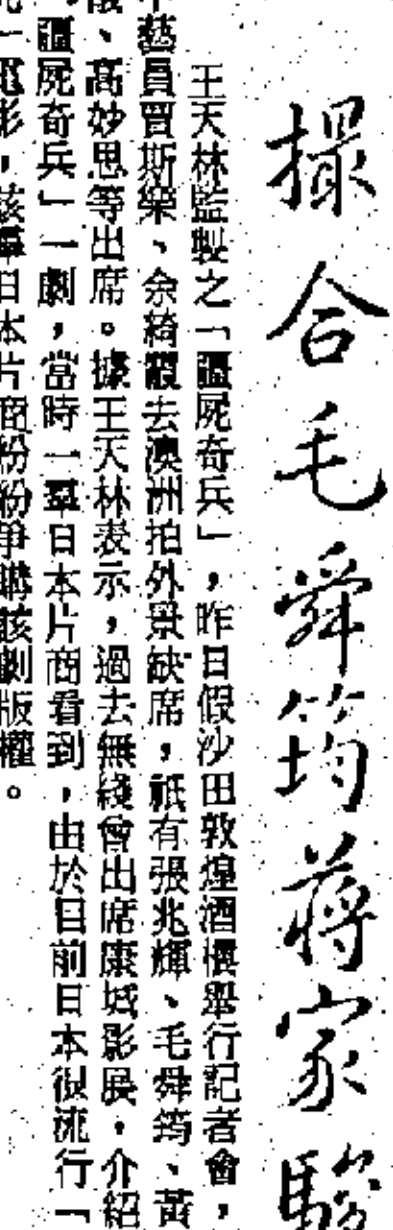 撮合毛舜筠蔣家駿
王天林監製之「殭屍奇兵」，昨日假沙田敦煌酒樓舉行記者會，
藝員賈斯樂、余綺霞去澳洲拍外景缺席，祇有張兆輝、毛舜筠、黃
、高妙思等出席。據王天林表示，過去無綫曾出席康城影展，介紹
「殭屍奇兵」一劇，當時一羣日本片商看到，由於目前日本很流行「
一電影，該羣日本片商紛紛爭購該劇版權。